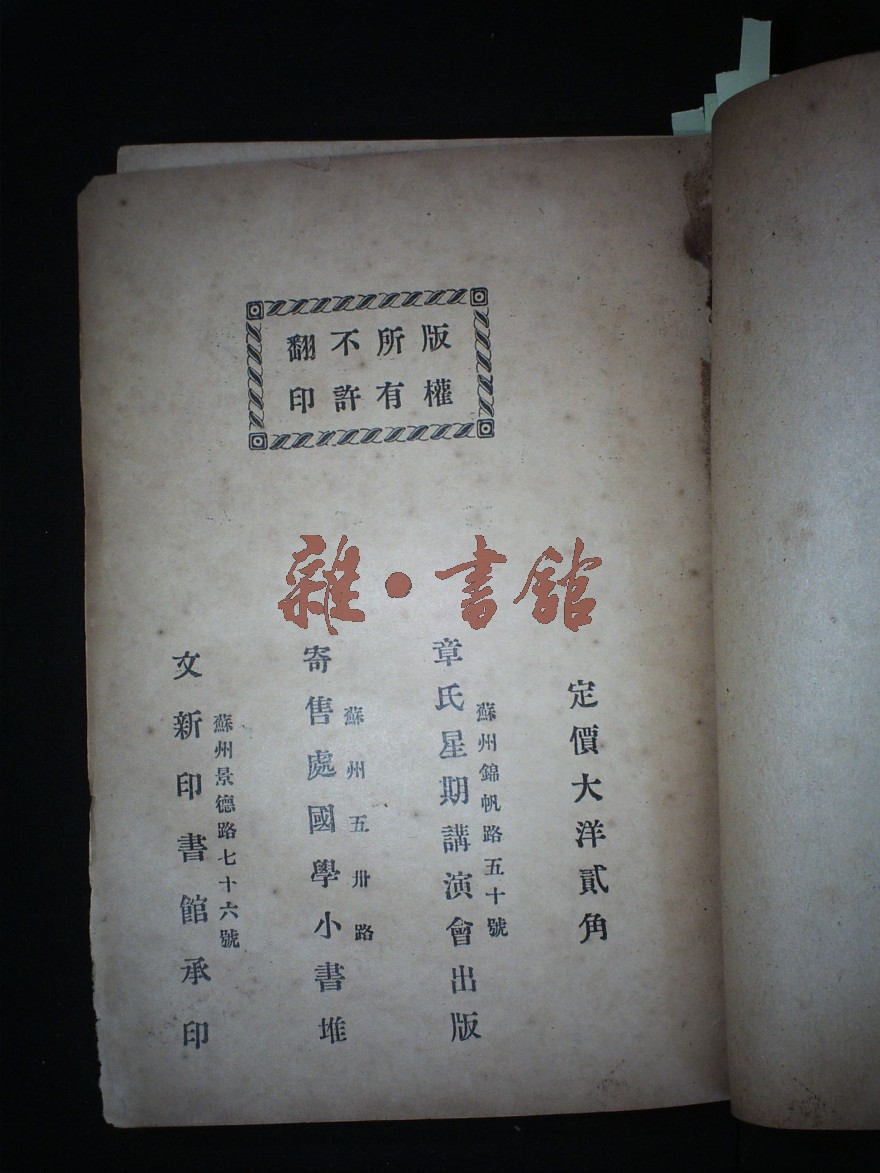 版權
所有
不許
翻印
雜·書館
定價大洋貳角
蘇州錦帆路五十號
章氏星期講演會出版
蘇州五卅路
寄售處國學小書堆
蘇州景德路七十六號
文新印書館承印